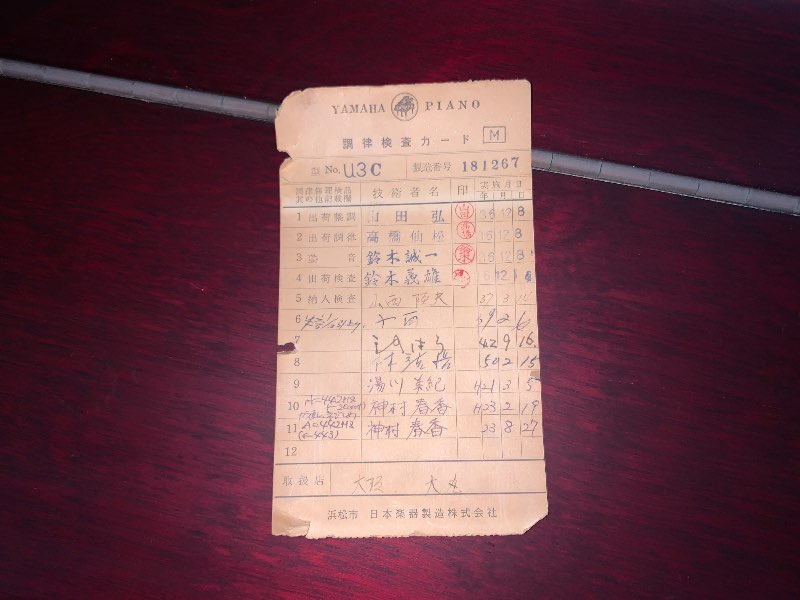 YAMAHA PIANO
調律検査カード M
型 No. U3C 製造番号 181267
調律修理検品其の他記載欄 技術者名 印 実施月日 年 月 日
1 出荷整調 田 弘 36 12 8
2 出荷調律 高橋仙松 36 12 8
3 整音 鈴木誠一 鈴木 36 12 8
4 出荷検査 鈴木義雄 36 12
5 納入検査 山西 37 3
6
7 42 9 16
8 50 2 15
9 湯川 美紀 H21 3 5
10 A=442Hz 神村 春香 H23 2 19
11 A=442Hz (←443) 神村 春香 23 8 27
12
取扱店 大阪
浜松市 日本楽器製造株式会社